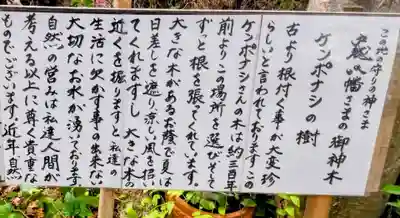 この地の守りの神さま
八幡さまの御神木
ケンポナシの樹
古より根付く事が大変珍
らしいと言われております この
ケンポナシさんの木は約三百年
前よりこの場所を選びそして
ずっと根を張ってくれています。
大きな木があるお蔭で夏は
日差しを遮り涼しい風を招い
てくれますし 大きな木の
近くを掘りますと 私達の
生活に欠かす事の出来ない
大切なお水が湧いております
自然の営みは私達人間が
考える以上に尊く貴重な
ものでございます。近年 自然